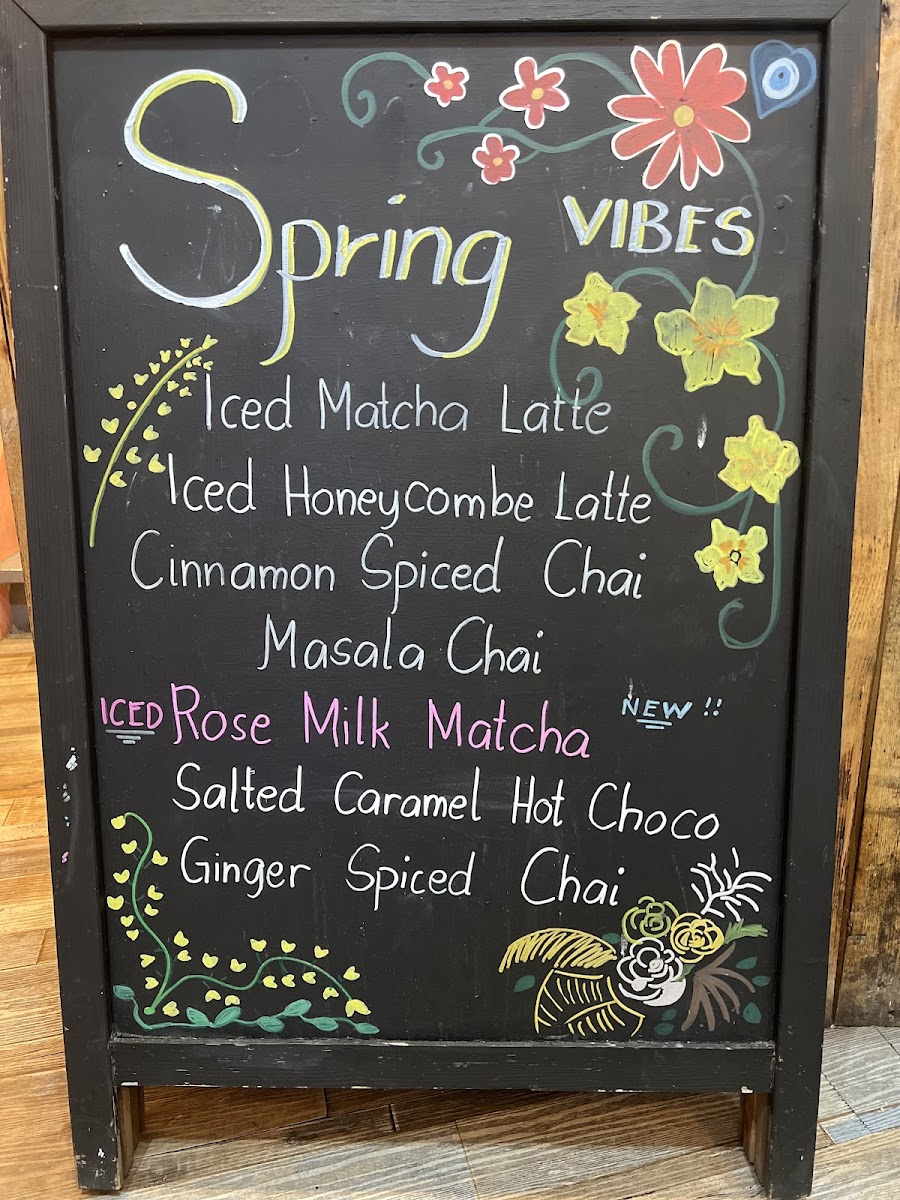 Spring VIBES
Iced Matcha Latte
Iced Honeycombe Latte
Cinnamon Spiced Chai
Masala Chai
ICED Rose Milk Matcha NEW !!
Salted Caramel Hot Choco
Ginger Spiced Chai